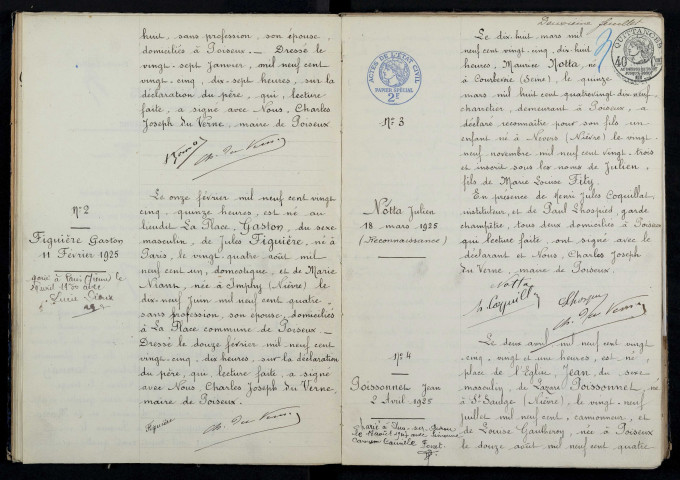 huit, sans profession, son épouse,
domiciliés à Poiseux. — Dressé le
vingt-sept Janvier, mil neuf cent
vingt-cinq, dix-sept heures, sur la
déclaration du père, qui, lecture
faite, a signé avec Nous, Charles
Joseph du Verne, maire de Poiseux
Ch. du Verne
N° 2
Figuière Gaston
11 Février 1925
Le onze février mil neuf cent vingt
cinq, quinze heures, est né au
lieudit La Place, Gaston, du sexe
masculin, de Jules Figuière, né à
Paris, le vingt quatre août mil
neuf cent un, domestique, et de Marie
née à Imphy (Nièvre) le
dix-neuf Juin mil neuf cent quatre
sans profession, son épouse, domiciliés
à La Place commune de Poiseux. —
Dressé le douze février mil neuf cent
vingt-cinq, dix heures, sur la déclaration
du père, qui, lecture faite, a signé
avec Nous, Charles Joseph du Verne
maire de Poiseux.
Figuière
Ch. du Verne
Deuxième feuillet
ACTES DE L'ÉTAT CIVIL
PAPIER SPÉCIAL
2F
QUITTANCES
40
N° 3
Notta Julien
18 mars 1925
(Reconnaissance)
Le dix-huit mars mil
neuf cent vingt-cinq, dix-huit
heures, Maurice Notta né
à Courbevoie (Seine), le quinze
mars mil huit cent quatrevingt dix-neuf
charretier, demeurant à Poiseux, a
déclaré reconnaître pour son fils un
enfant né à Nevers (Nièvre) le vingt-
neuf novembre mil neuf cent vingt-trois
et inscrit sous les noms de Julien,
fils de Marie Louise Fity.
En présence de Henri Jules Coquillat,
instituteur, et de Paul Lhospied, garde
champêtre, tous deux domiciliés à Poiseux
qui, lecture faite, ont signé avec le
déclarant et Nous, Charles Joseph
du Verne, maire de Poiseux.
Notta
H. Coquillat
Lhospied
Ch. du Verne
N° 4
Poissonnet Jean
2 Avril 1925
Le deux avril mil neuf cent vingt
cinq, vingt et une heures, est né,
place de l'Eglise, Jean du sexe
masculin, de Lazare Poissonnet, né
à St Saulge (Nièvre), le vingt-neuf
juillet mil neuf cent, camionneur, et
de Louise Gauberoy, née à Poiseux
le douze août mil neuf cent quatre